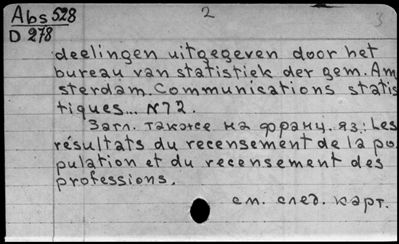 Abs 528
D 278
2
3
deelingen uitgegeven door het
bureau van statistiek der gem. Am
sterdam. Communications statis
tiques... N72.
Загл. также на франц. яз.: Les
résultats du recensement de la po
pulation et du recensement des
professions.
см. след. карт.